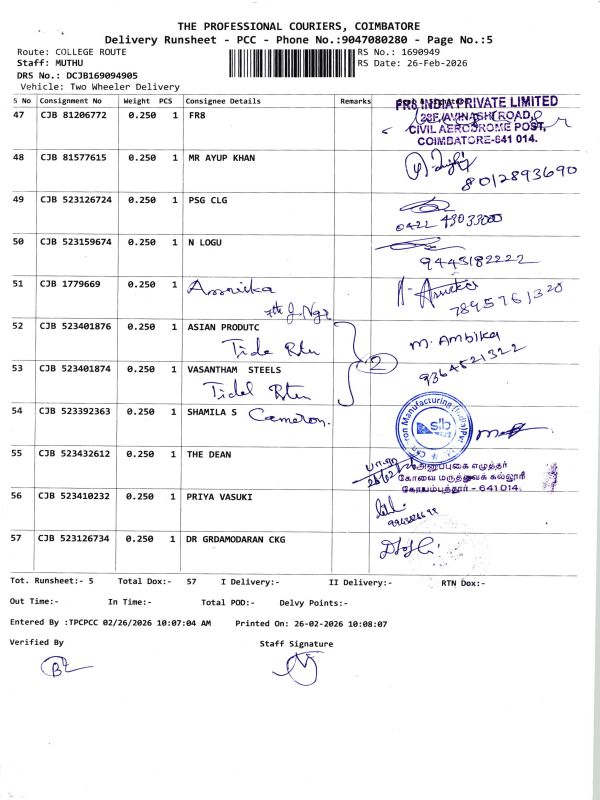 THE PROFESSIONAL COURIERS, COIMBATORE
Delivery Runsheet - PCC - Phone No.:9047080280 - Page No.:5
Route: COLLEGE ROUTE
RS No.: 1690949
Staff: MUTHU
RS Date: 26-Feb-2026
DRS No.: DCJB169094905
Vehicle: Two Wheeler Delivery
S No Consignment No Weight PCS Consignee Details Remarks
47 CJB 81206772 0.250 1 FR8
FR8 INDIA PRIVATE LIMITED
CIVIL AERODROME POST,
COIMBATORE-641 014.
48 CJB 81577615 0.250 1 MR AYUP KHAN
8012893690
49 CJB 523126724 0.250 1 PSG CLG
0422 43033000
50 CJB 523159674 0.250 1 N LOGU
9443182222
51 CJB 1779669 0.250 1
7895761320
52 CJB 523401876 0.250 1 ASIAN PRODUTC
M. Ambika
9364521322
2
53 CJB 523401874 0.250 1 VASANTHAM STEELS
Tidel Rtn
54 CJB 523392363 0.250 1 SHAMILA S Cameron.
55 CJB 523432612 0.250 1 THE DEAN
கோவை மருத்துவக் கல்லூரி
கோயம்புத்தூர் - 641 014
56 CJB 523410232 0.250 1 PRIYA VASUKI
57 CJB 523126734 0.250 1 DR GRDAMODARAN CKG
Tot. Runsheet:- 5 Total Dox:- 57 I Delivery:- II Delivery:- RTN Dox:-
Out Time:- In Time:- Total POD:- Delvy Points:-
Entered By :TPCPCC 02/26/2026 10:07:04 AM Printed On: 26-02-2026 10:08:07
Verified By Staff Signature